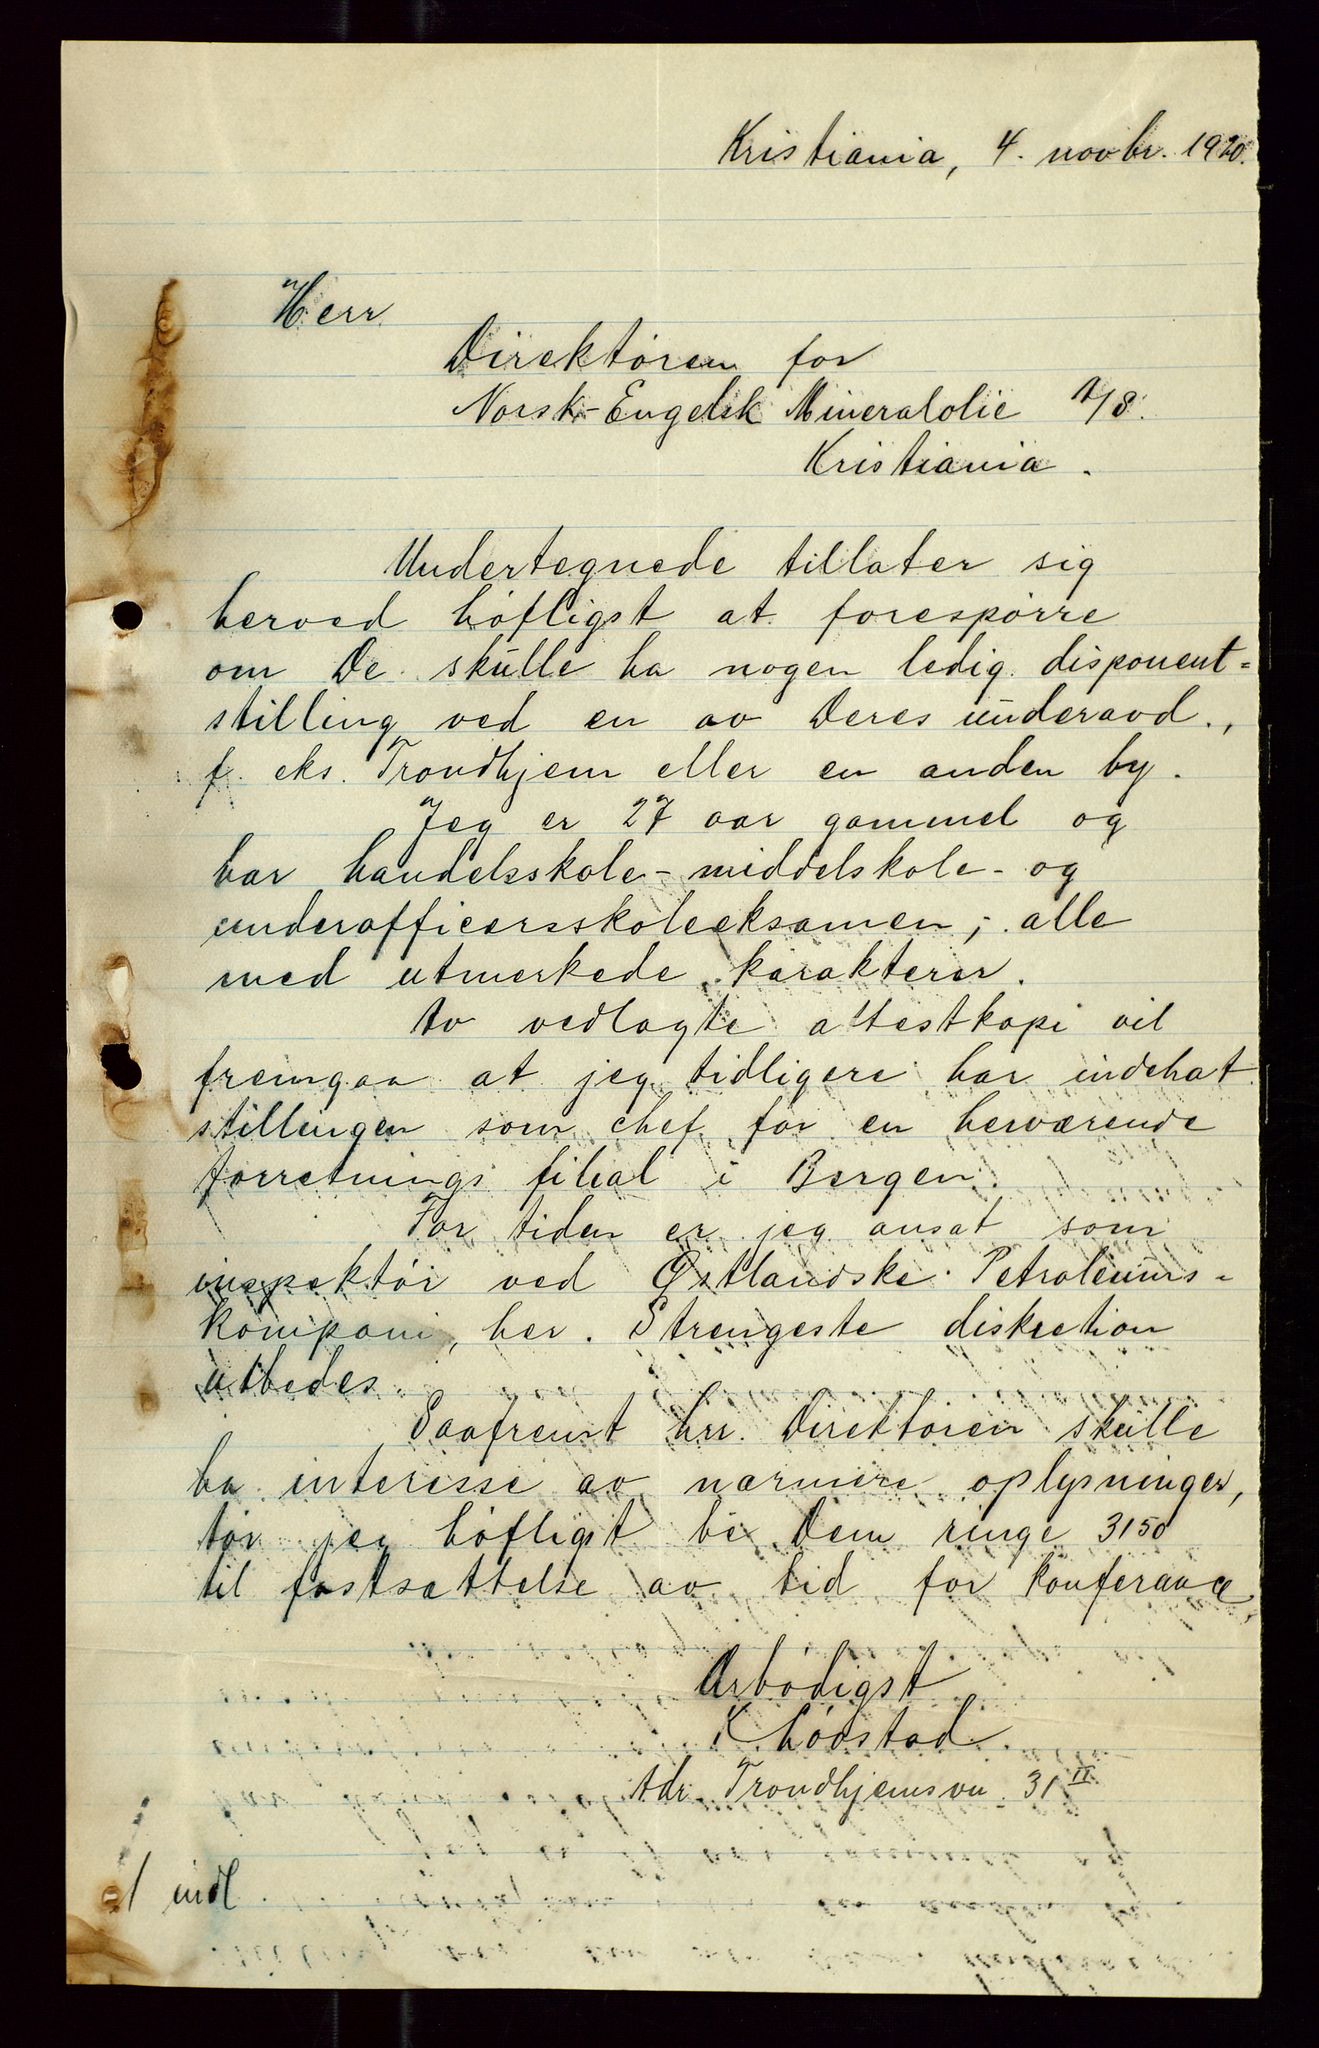 Kristiania, 4. novbr. 1920.
Herr
Direktøren for
Norsk-Engelsk Mineralolie A/S.
Kristiania.
Undertegnede tillater sig
herved høfligst at forespørre
om De skulle ha nogen ledig disponent-
stilling ved en av Deres underavd.,
f. eks. Trondhjem eller en anden by.
Jeg er 27 aar gammel og
har handelsskole- middelskole- og
underofficersskoleeksamen; alle
med utmerkede karakterer.
Av vedlagte attestkopi vil
fremgaa at jeg tidligere har indehat
stillingen som chef for en herværende
forretnings filial i Bergen.
For tiden er jeg ansat som
inspektør ved Østlandske Petroleums-
kompani, her. Strengeste diskretion
utbedes.
Saafremt hrr. Direktøren skulle
ha interesse av nærmere oplysninger,
tør jeg høfligst be Dem ringe 3150
til fastsættelse av tid for konferance.
Ærbødigst
K Løvstad
Adr. Trondhjemsvn. 31 II
1 indl